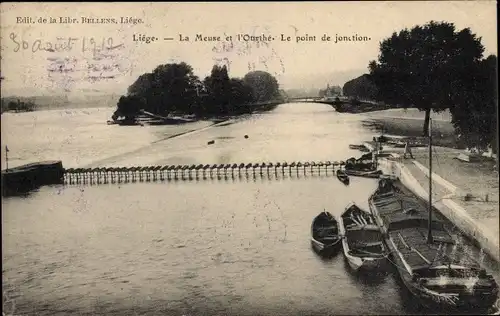 Edit. de la Libr. BELLENS, Liége.
30 août 1912
Liége. — La Meuse et l'Ourthe. Le point de jonction.